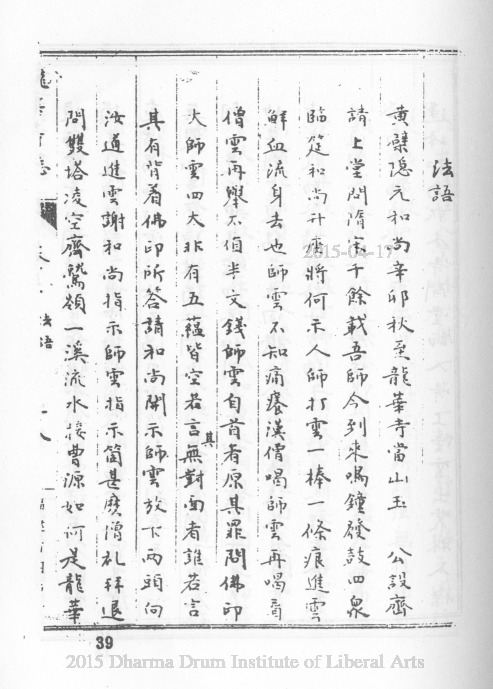 法語
黃檗隱元和尚辛卯秋至龍華寺當山玉　公設齋
請上堂問隋宋千餘載吾師今到來鳴鐘發鼓四衆
臨筵和尚升座將何示人師打雲一棒一條痕進雲
鮮血流身去也師雲不知痛癢漢僧喝師雲再喝看
僧雲再舉不值半文錢師雲自首者原其罪問佛印
大師雲四大非有五蘊皆空若言其無對面者誰若言
其有背着佛印所答請和尚開示師雲放下兩頭向
汝道進雲謝和尚指示師雲指示箇甚麼僧礼拜退
問雙塔凌空齊鷲嶺一溪流水接曹源如何是龍華
法語
39
2015-04-17
2015 Dharma Drum Institute of Liberal Arts